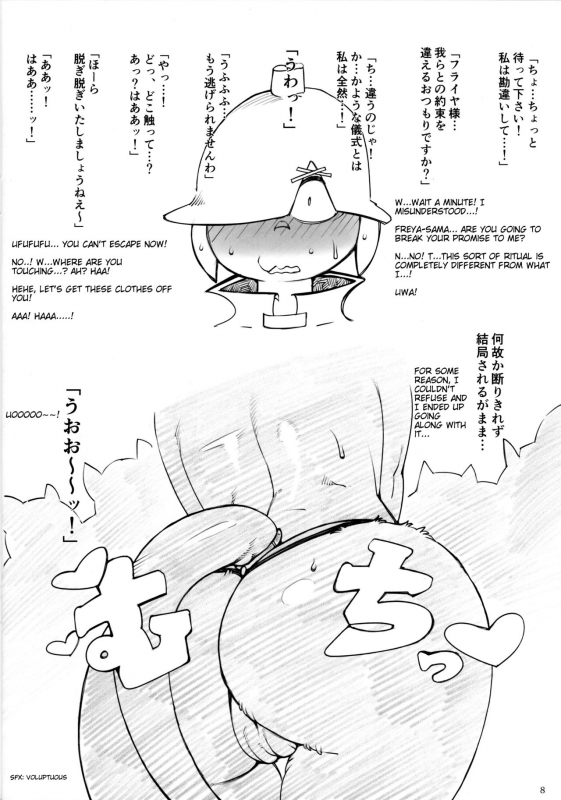 「ちょ…ちょっと
待って下さい!
私は勘違いして…!」
「フライヤ様…
我らとの約束を
違えるおつもりですか?」
「ち…違うのじゃ!
か…かような儀式とは
私は全然…!」
「うわっ!」
「うふふふ…
もう逃げられませんわ」
「やっ…!
どっ、どこ触って…?
あっ?はああッ!」
「ほーら
脱ぎ脱ぎいたしましょうねえ~」
「ああッ!
はああ……ッ!」
W...WAIT A MINUTE! I
MISUNDERSTOOD...!
FREYA-SAMA... ARE YOU GOING TO
BREAK YOUR PROMISE TO ME?
N...NO! T...THIS SORT OF RITUAL IS
COMPLETELY DIFFERENT FROM WHAT
I...!
UWA!
UFUFUFU... YOU CAN'T ESCAPE NOW!
NO..! W...WHERE ARE YOU
TOUCHING...? AH? HAA!
HEHE, LET'S GET THESE CLOTHES OFF
YOU!
AAA! HAAA.....!
何故か断りきれず
結局されるがまま…
FOR SOME
REASON, I
COULDN'T
REFUSE AND I
ENDED UP
GOING
ALONG WITH
IT...
「うおお~~ッ!」
UOOOOO~~!
むちっ
SFX: VOLUPTUOUS
8